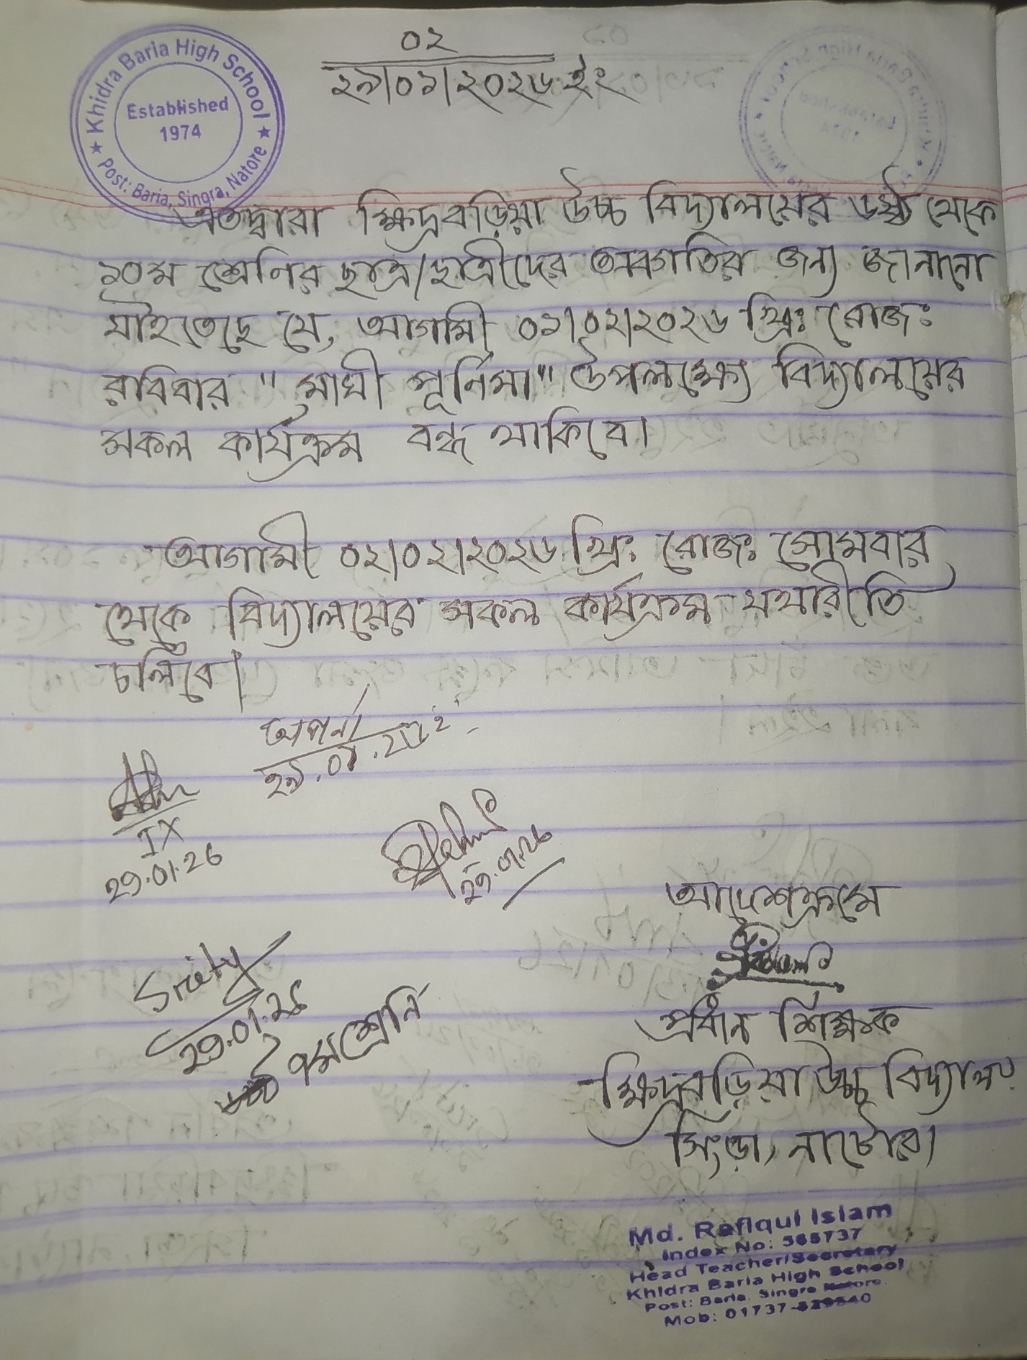 Khidra Baria High School
Established
1974
Post: Baria, Singra, Natore
০২
২৯|০১|২০২৬ ইং
এতদ্বারা ক্ষিদ্রবড়িয়া উচ্চ বিদ্যালয়ের ৬ষ্ঠ থেকে
১০ম শ্রেণির ছাত্র/ছাত্রীদের অবগতির জন্য জানানো
যাইতেছে যে, আগামী ০১|০২|২০২৬ খ্রিঃ রোজঃ
রবিবার "মাঘী পূর্ণিমা" উপলক্ষ্যে বিদ্যালয়ের
সকল কার্যক্রম বন্ধ থাকিবে।
আগামী ০২|০২|২০২৬ খ্রিঃ রোজঃ সোমবার
থেকে বিদ্যালয়ের সকল কার্যক্রম যথারীতি
চলিবে।
অপর্না
২৯.01.
IX
29.01.26
29.01.26
আদেশক্রমে
29.01.26
৭ম শ্রেনি
প্রধান শিক্ষক
ক্ষিদ্রবড়িয়া উচ্চ বিদ্যালয়
সিংড়া, নাটোর।
Md. Rafiqul Islam
Index No: 565737
Head Teacher/Secretary
Khidra Baria High School
Post: Baria, Singra Natore
Mob: 01737-